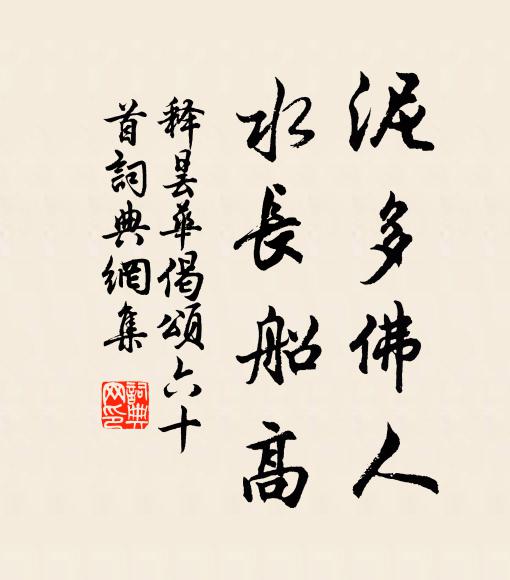 泥多佛人
水長船高
釋曇華偈頌六十
首詞典網集
詞典
网印